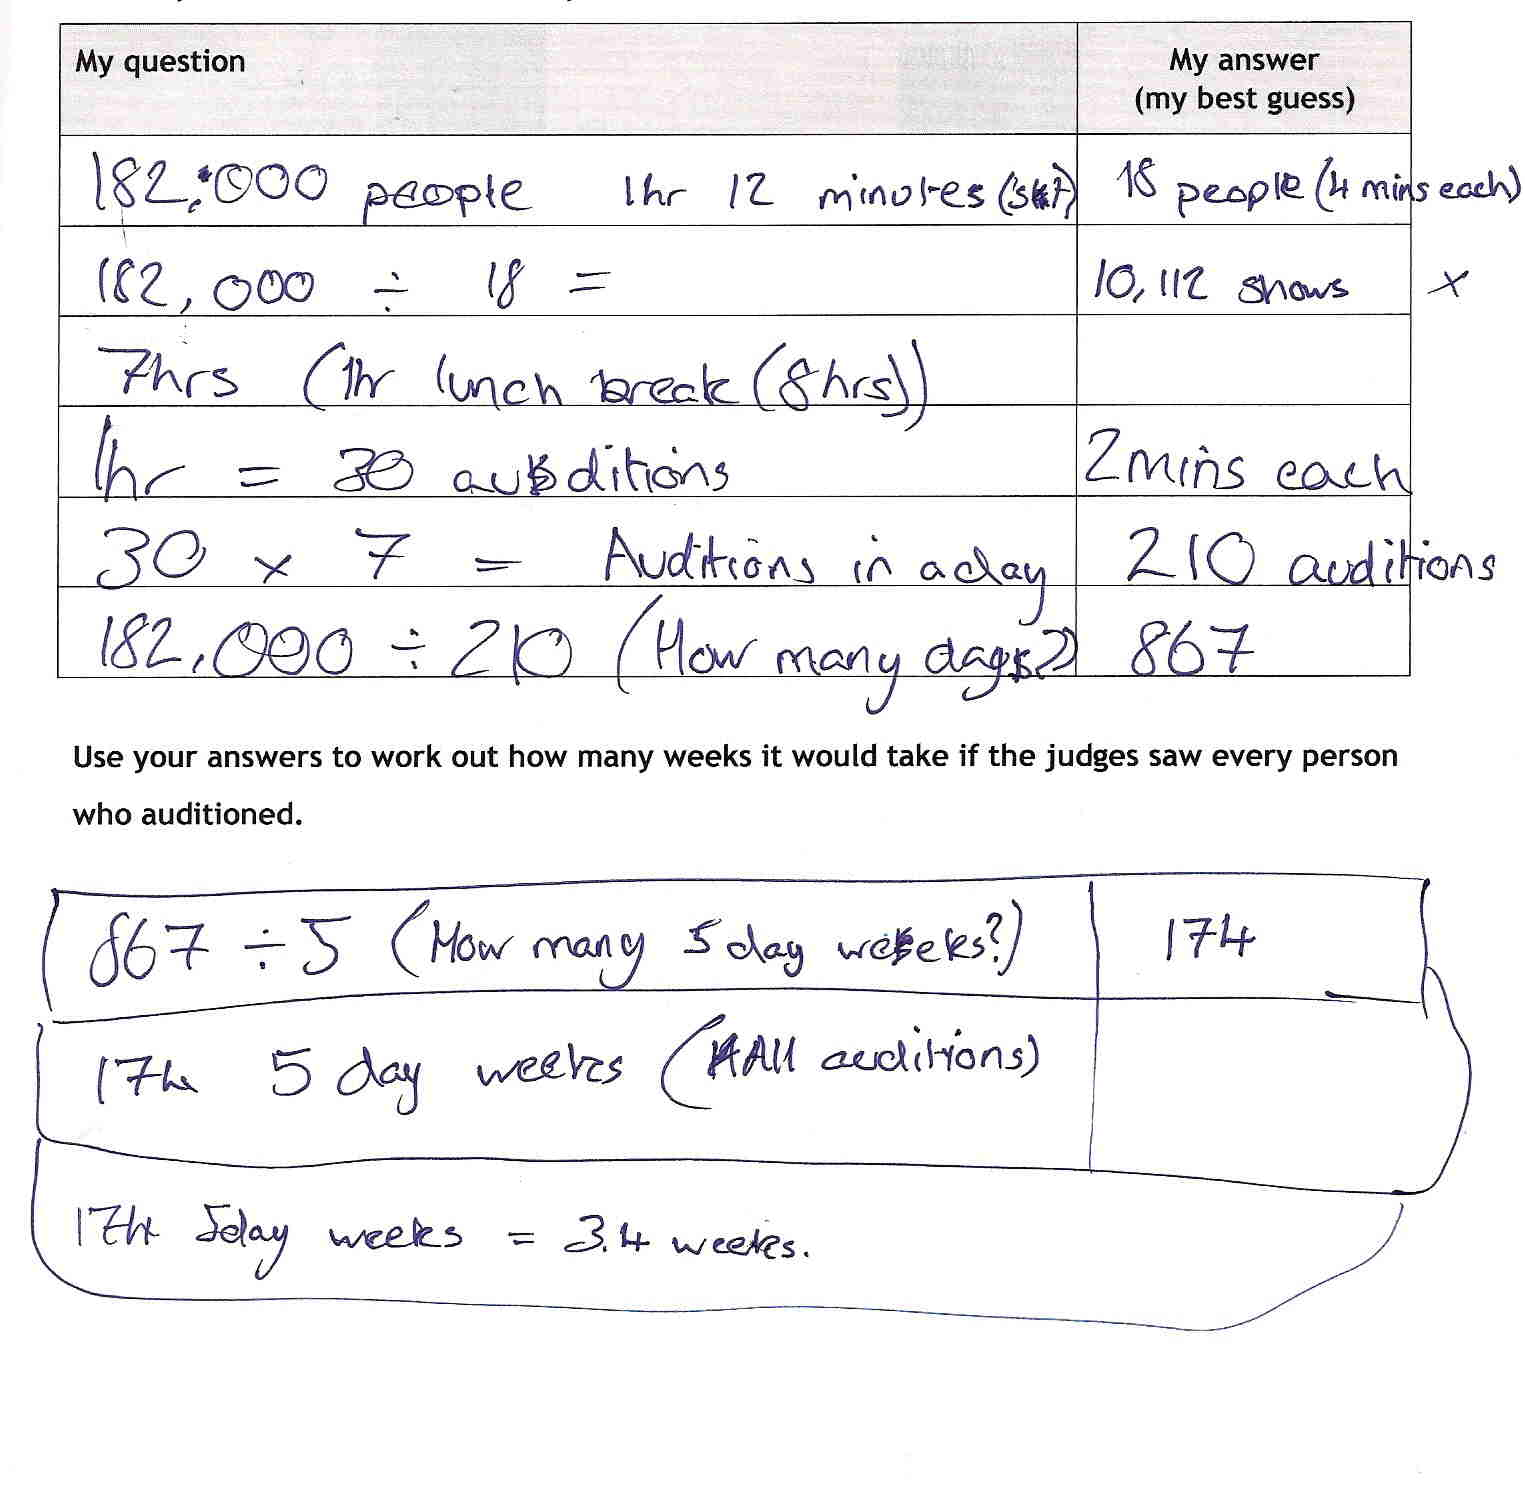 My question My answer
(my best guess)
182,000 people 1hr 12 minutes 18 people (4 mins each)
182,000 ÷ 18 = 10,112 shows ×
7hrs (1hr lunch break (8hrs))
1hr = 30 auditions 2mins each
30 × 7 = Auditions in a day 210 auditions
182,000 ÷ 210 (How many days?) 867
Use your answers to work out how many weeks it would take if the judges saw every person
who auditioned.
867 ÷ 5 (How many 5 day weeks?) 174
174 5 day weeks (All auditions)
174 5day weeks = 3.4 weeks.